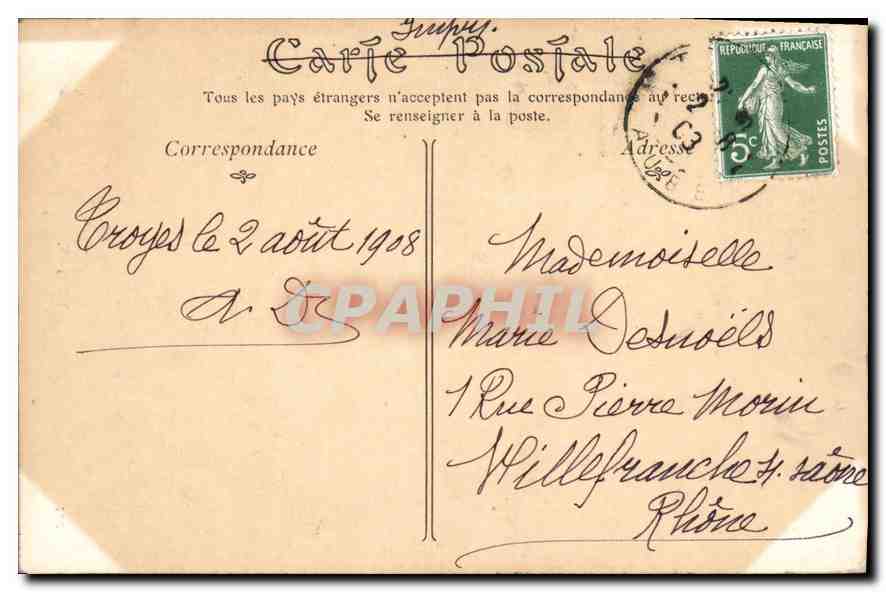 Impr.
Carte Postale
Tous les pays étrangers n'acceptent pas la correspondance au recto
Se renseigner à la poste.
Correspondance
Adresse
REPUBLIQUE FRANÇAISE
5c
POSTES
AUBE
Troyes le 2 août 1908
A. D.
CPAPHIL
Mademoiselle
Marie Desnoëls
1 Rue Pierre Morin
Villefranche s. saône
Rhône